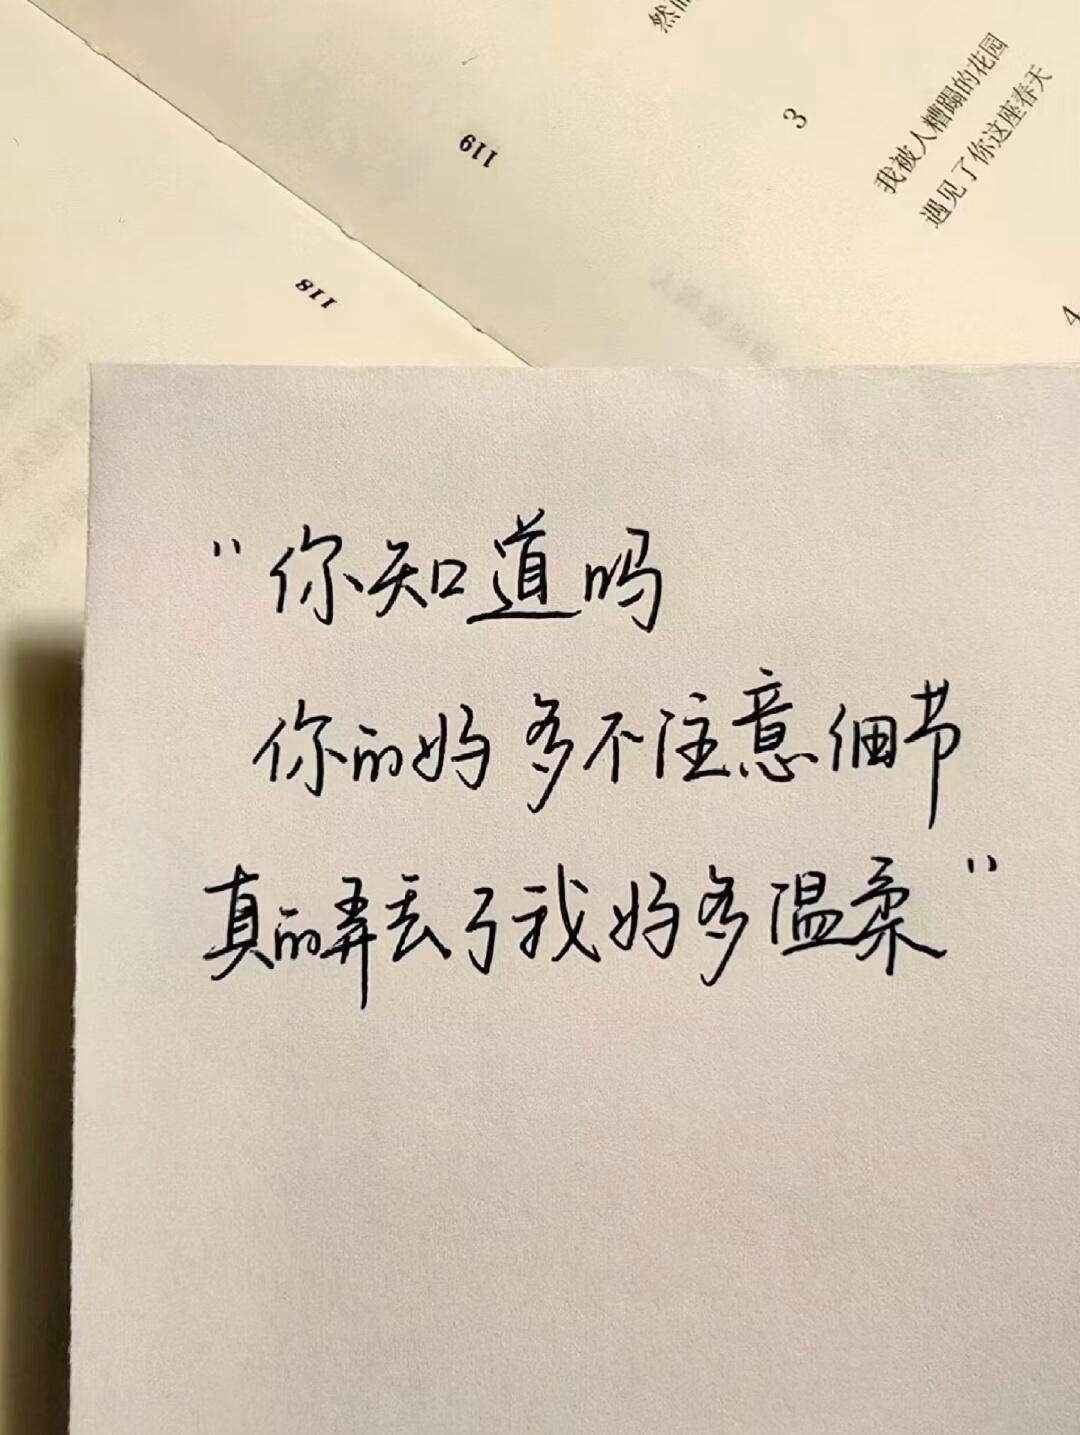 然
3
我被人糟蹋的花园
遇见了你这座春天
4
119
118
"你知道吗
你的好多不注意细节
真的弄丢了我好多温柔"